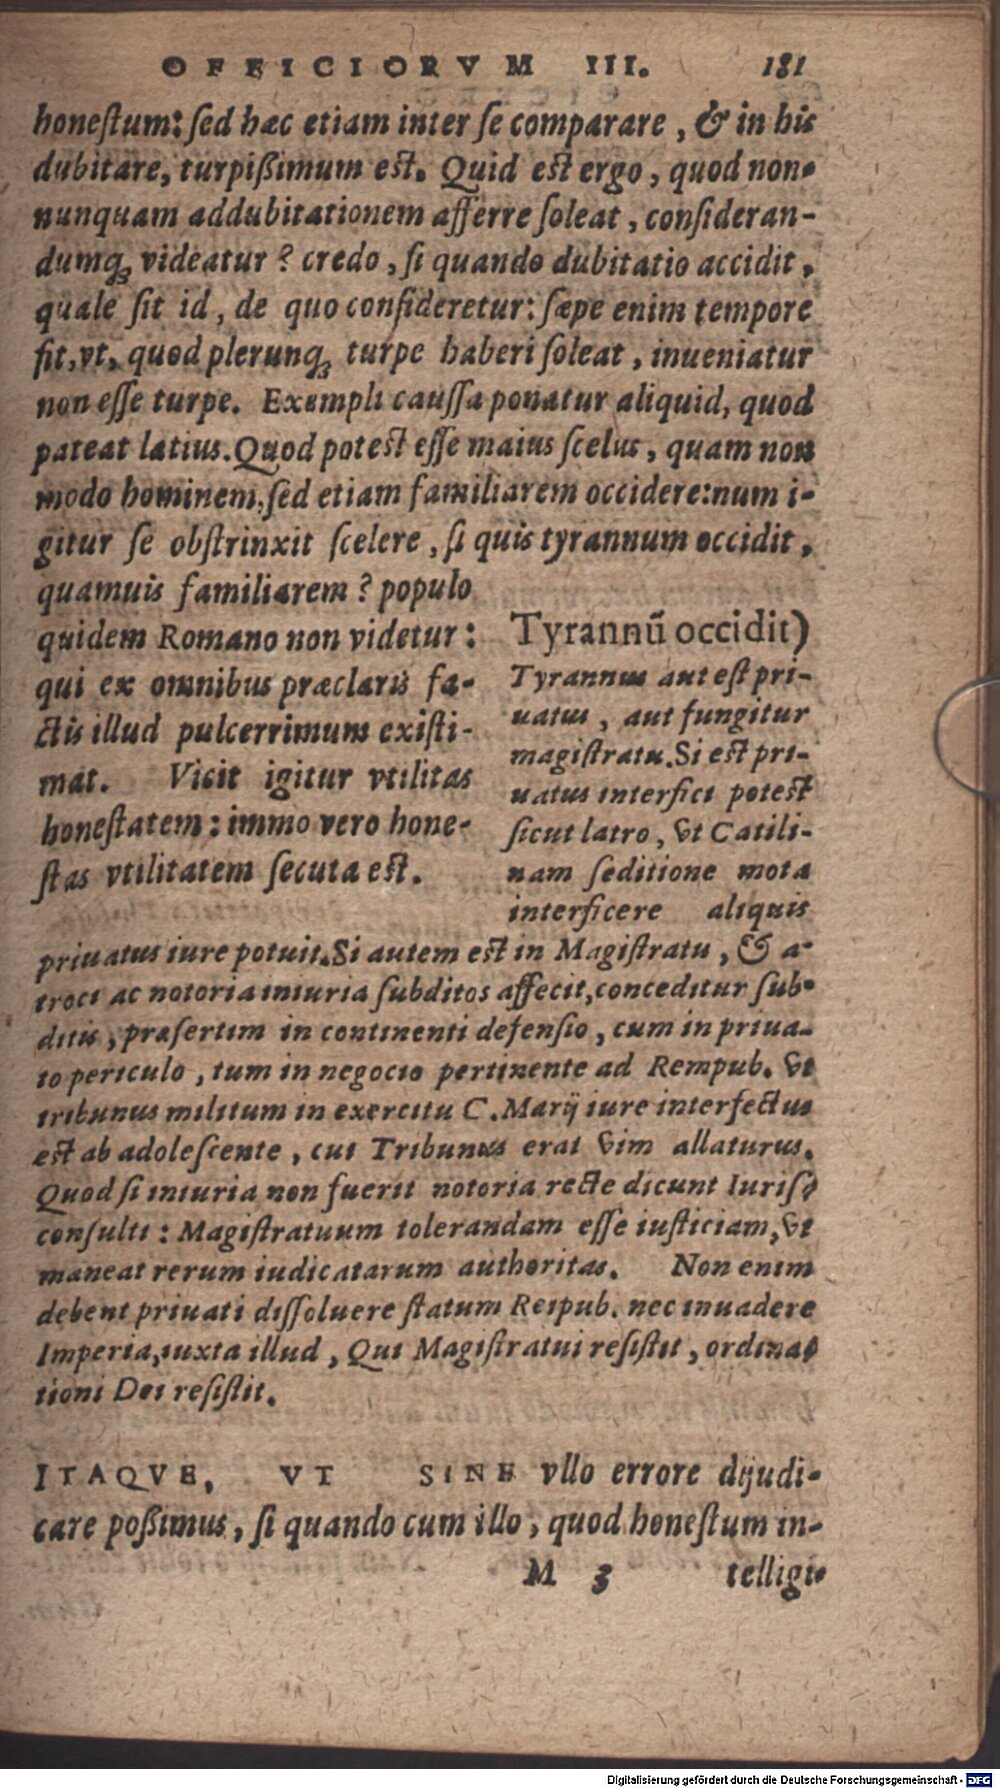 OFFICIORVM III. 181
honestum: sed hæc etiam inter se comparare, & in his
dubitare, turpißimum est. Quid est ergo, quod non-
nunquam addubitationem afferre soleat, consideran-
dumq; videatur? credo, si quando dubitatio accidit,
quale sit id, de quo consideretur: sæpe enim tempore
fit, vt, quod plerunq; turpe haberi soleat, inueniatur
non esse turpe. Exempli caussa ponatur aliquid, quod
pateat latius. Quod potest esse maius scelus, quam non
modo hominem, sed etiam familiarem occidere: num i-
gitur se obstrinxit scelere, si quis tyrannum occidit,
quamuis familiarem? populo
quidem Romano non videtur:
qui ex omnibus præclaris fa-
ctis illud pulcerrimum existi-
mat. Vicit igitur vtilitas
honestatem: immo vero hone-
stas vtilitatem secuta est.
Tyrannū occidit)
Tyrannus aut est pri-
uatus, aut fungitur
magistratu. Si est pri-
uatus interfici potest
sicut latro, vt Catili-
nam seditione mota
interficere aliquis
priuatus iure potuit. Si autem est in Magistratu, & a-
troci ac notoria iniuria subditos affecit, conceditur sub-
ditis, præsertim in continenti defensio, cum in priua-
to periculo, tum in negocio pertinente ad Rempub. vt
tribunus militum in exercitu C. Marij iure interfectus
est ab adolescente, cui Tribunus erat vim allaturus.
Quod si iniuria non fuerit notoria recte dicunt Iuris-
consulti: Magistratuum tolerandam esse iusticiam, vt
maneat rerum iudicatarum authoritas. Non enim
debent priuati dissoluere statum Reipub. nec inuadere
Imperia, iuxta illud, Qui Magistratui resistit, ordina-
tioni Dei resistit.
ITAQVE, VT SINE vllo errore dijudi-
care poßimus, si quando cum illo, quod honestum in-
M 3 telligi-
Digitalisierung gefördert durch die Deutsche Forschungsgemeinschaft - DFG